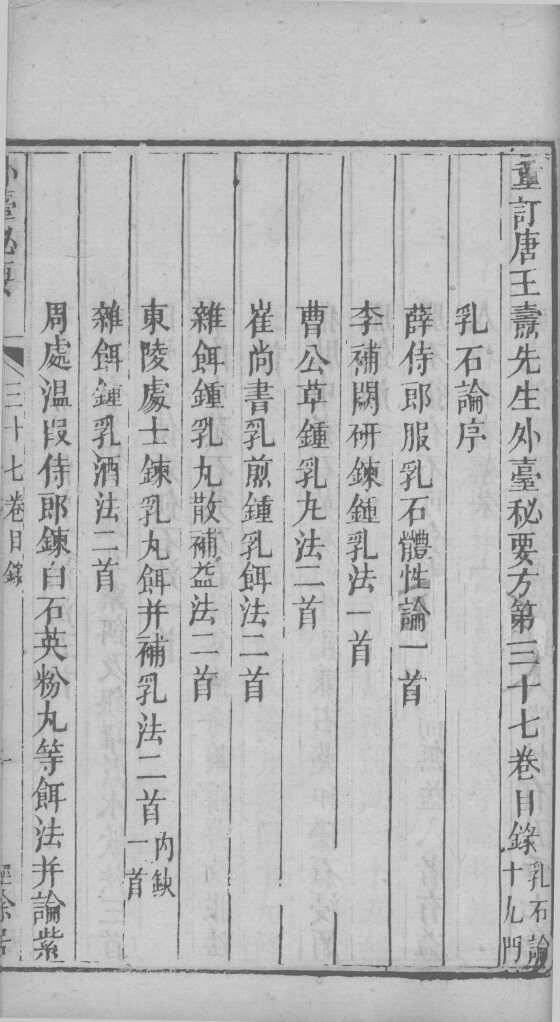 重訂唐王燾先生外臺秘要方第三十七卷目錄 乳石論 十九門
乳石論序
薛侍郎服乳石體性論一首
李補闕研鍊鍾乳法一首
曹公草鍾乳丸法二首
崔尚書乳煎鍾乳餌法二首
雜餌鍾乳丸散補益法二首
東陵處士鍊乳丸餌并補乳法二首 內缺 一首
雜餌鍾乳酒法二首
周處温叚侍郎鍊白石英粉丸等餌法并論紫
外臺秘要 三十七卷目錄 一 經余居